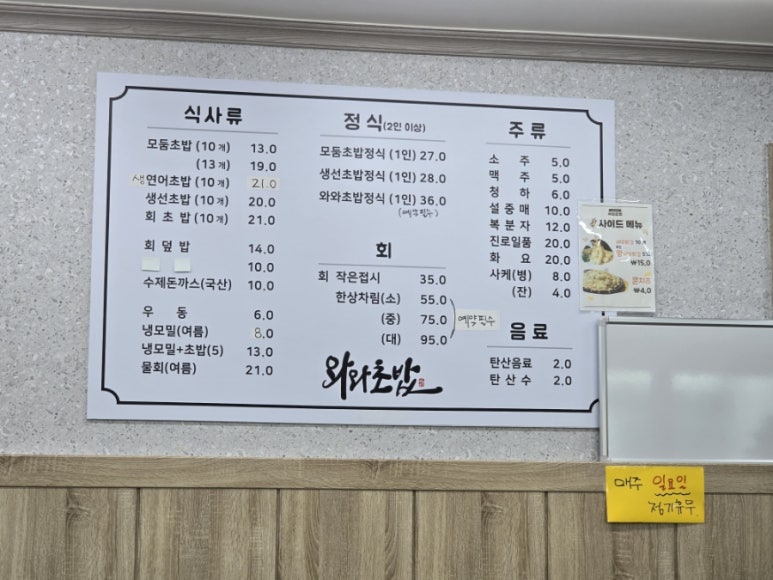 식사류
모둠초밥 (10개) 13.0
(13개) 19.0
생연어초밥 (10개) 21.0
생선초밥 (10개) 20.0
회 초 밥 (10개) 21.0
회 덮 밥 14.0
10.0
수제돈까스(국산) 10.0
우 동 6.0
냉모밀(여름) 8.0
냉모밀+초밥(5) 13.0
물회(여름) 21.0
정식(2인 이상)
모둠초밥정식 (1인) 27.0
생선초밥정식 (1인) 28.0
와와초밥정식 (1인) 36.0
(예약필수)
회
회 작은접시 35.0
한상차림(소) 55.0
(중) 75.0
(대) 95.0
예약필수
와와초밥
주류
소 주 5.0
맥 주 5.0
청 하 6.0
설 중 매 10.0
복 분 자 12.0
진로일품 20.0
화 요 20.0
사케(병) 8.0
(잔) 4.0
음료
탄산음료 2.0
탄 산 수 2.0
사이드 메뉴
₩15.0
콘치즈
₩4.0
매주 일요일
정기휴무